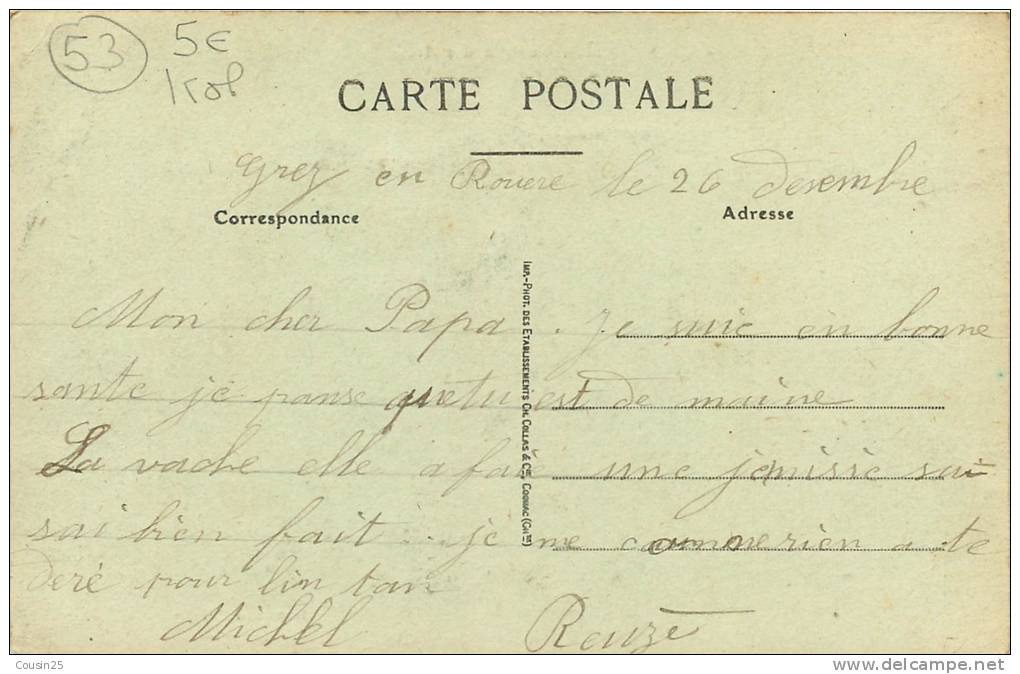 53 5€
CARTE POSTALE
Grez en Rouere le 26 desembre
Correspondance Adresse
IMP.-PHOT. DES ETABLISSEMENTS CH. COLLAS & Cie, COGNAC (Chte)
Mon cher Papa. Je suie en bonne
sante je panse que tu est de maine
La vache elle a fait une jenisse sai
sai bien fait ... je me rien a te
deré pour lin tan
Michel Reuzé
Cousin25
delcampe.net